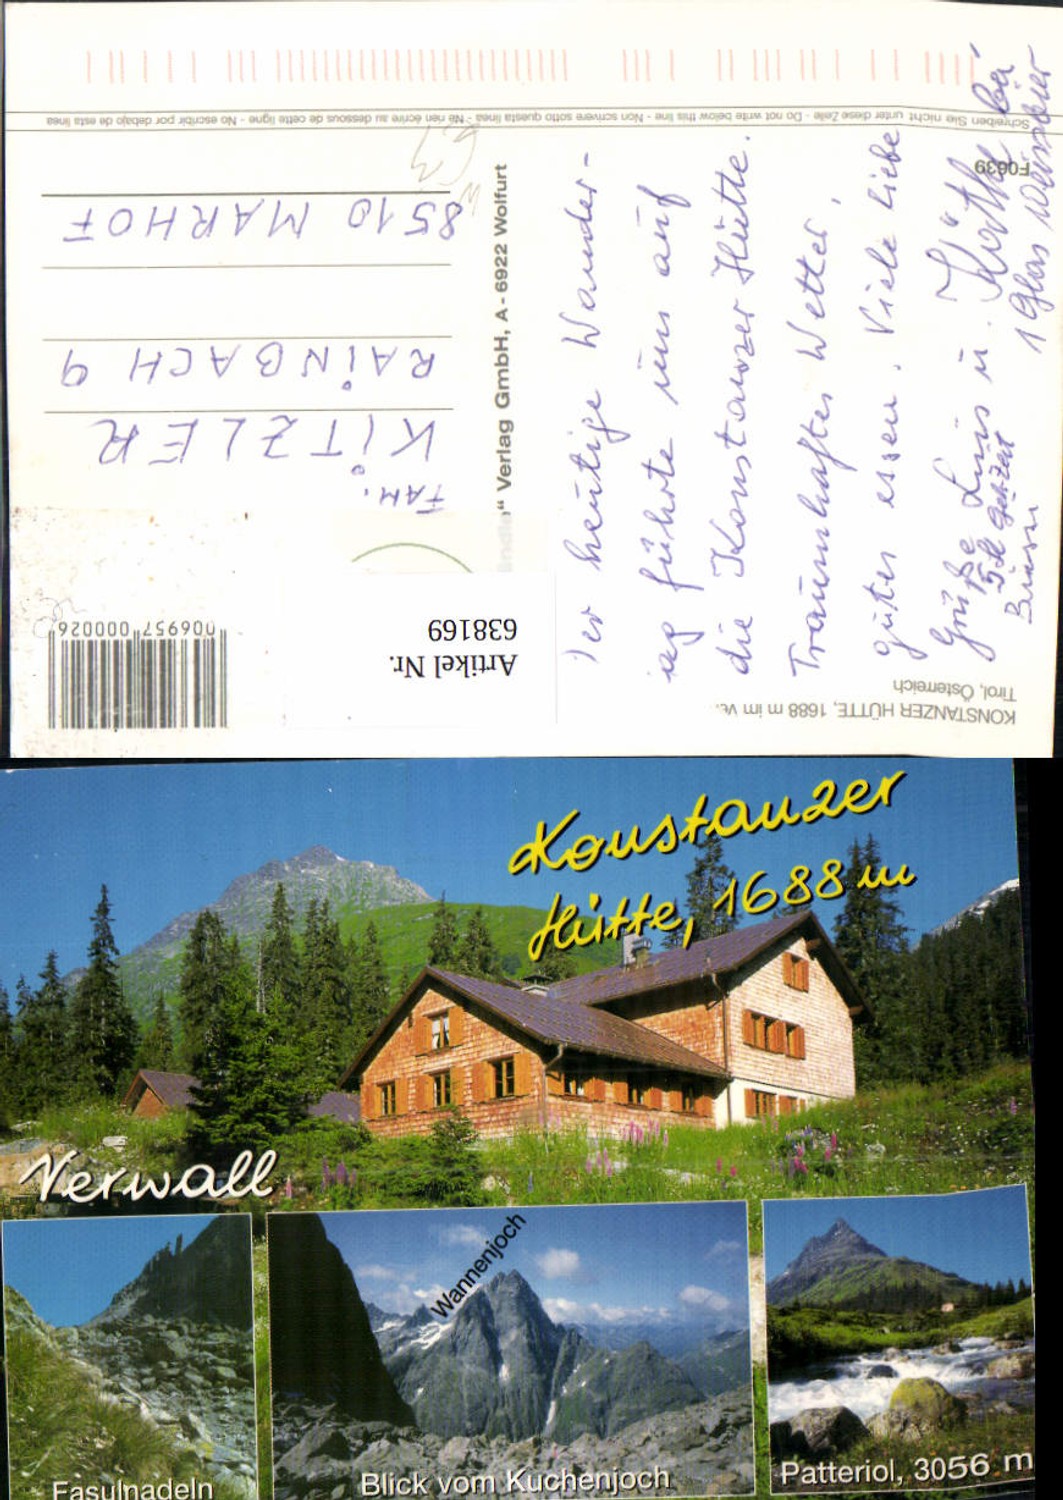 KONSTANZER HÜTTE, 1688 m im Ve
Tirol, Österreich
Der heutige Wander-
tag führte uns auf
die Konstanzer Hütte.
Traumhaftes Wetter,
gutes Essen. Viele liebe
Grüße Luis u. Käthe
5 St Gehzeit bei
1 Glas Weissbier
Verlag GmbH, A - 6922 Wolfurt
Artikel Nr.
638169
006957 000026
FAM.
KITZLER
RAINBACH 9
8510 MARHOF
F0639
Schreiben Sie nicht unter diese Zeile - Do not write below this line - Non scrivere sotto questa linea - Ne rien écrire au dessous de cette ligne - No escribir por debajo de esta linea
Konstanzer
Hütte, 1688 m
Verwall
Wannenjoch
Fasulnadeln
Blick vom Kuchenjoch
Patteriol, 3056 m